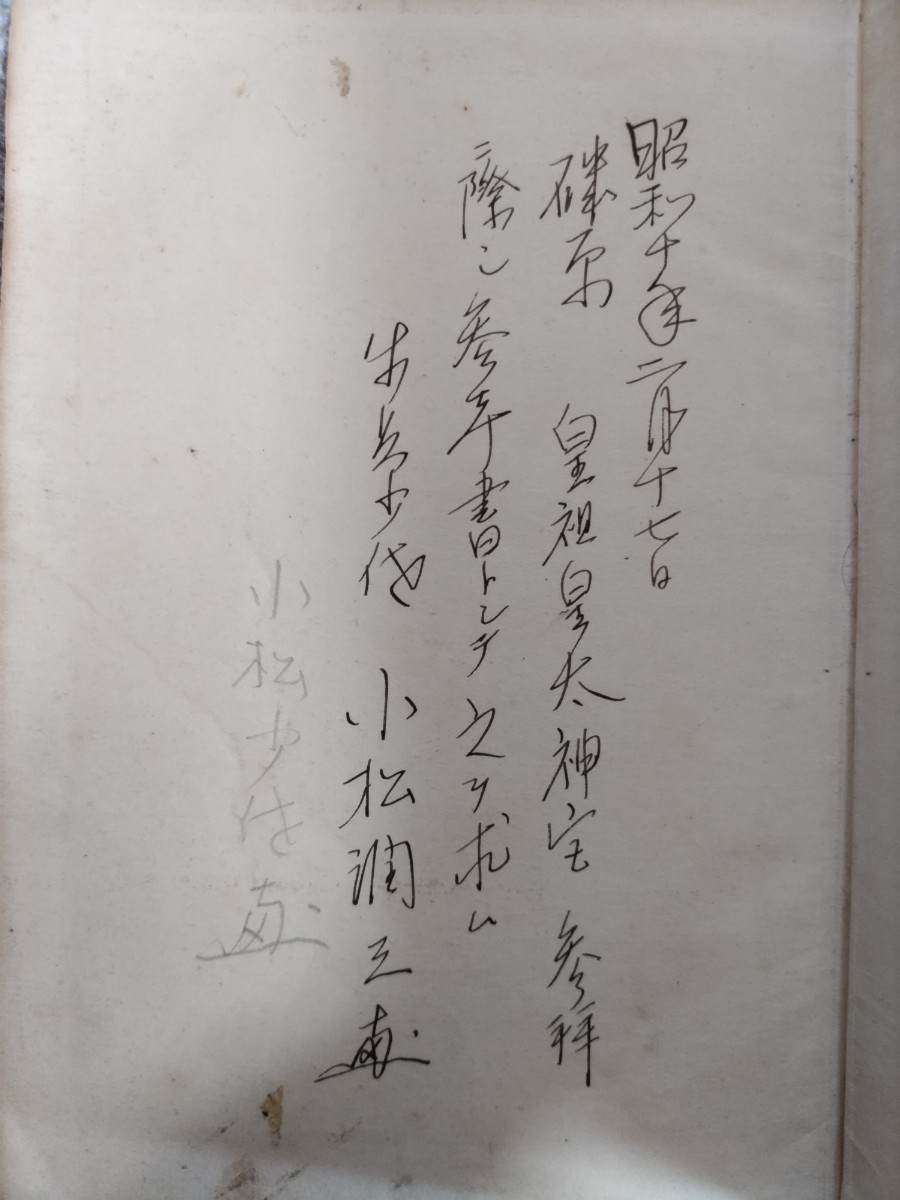 昭和十年二月十七日
磯原 皇祖皇太神宮 参拝
ニ際シ参考書トシテ之ヲ求ム
歩兵少佐 小松潤三
小松少佐